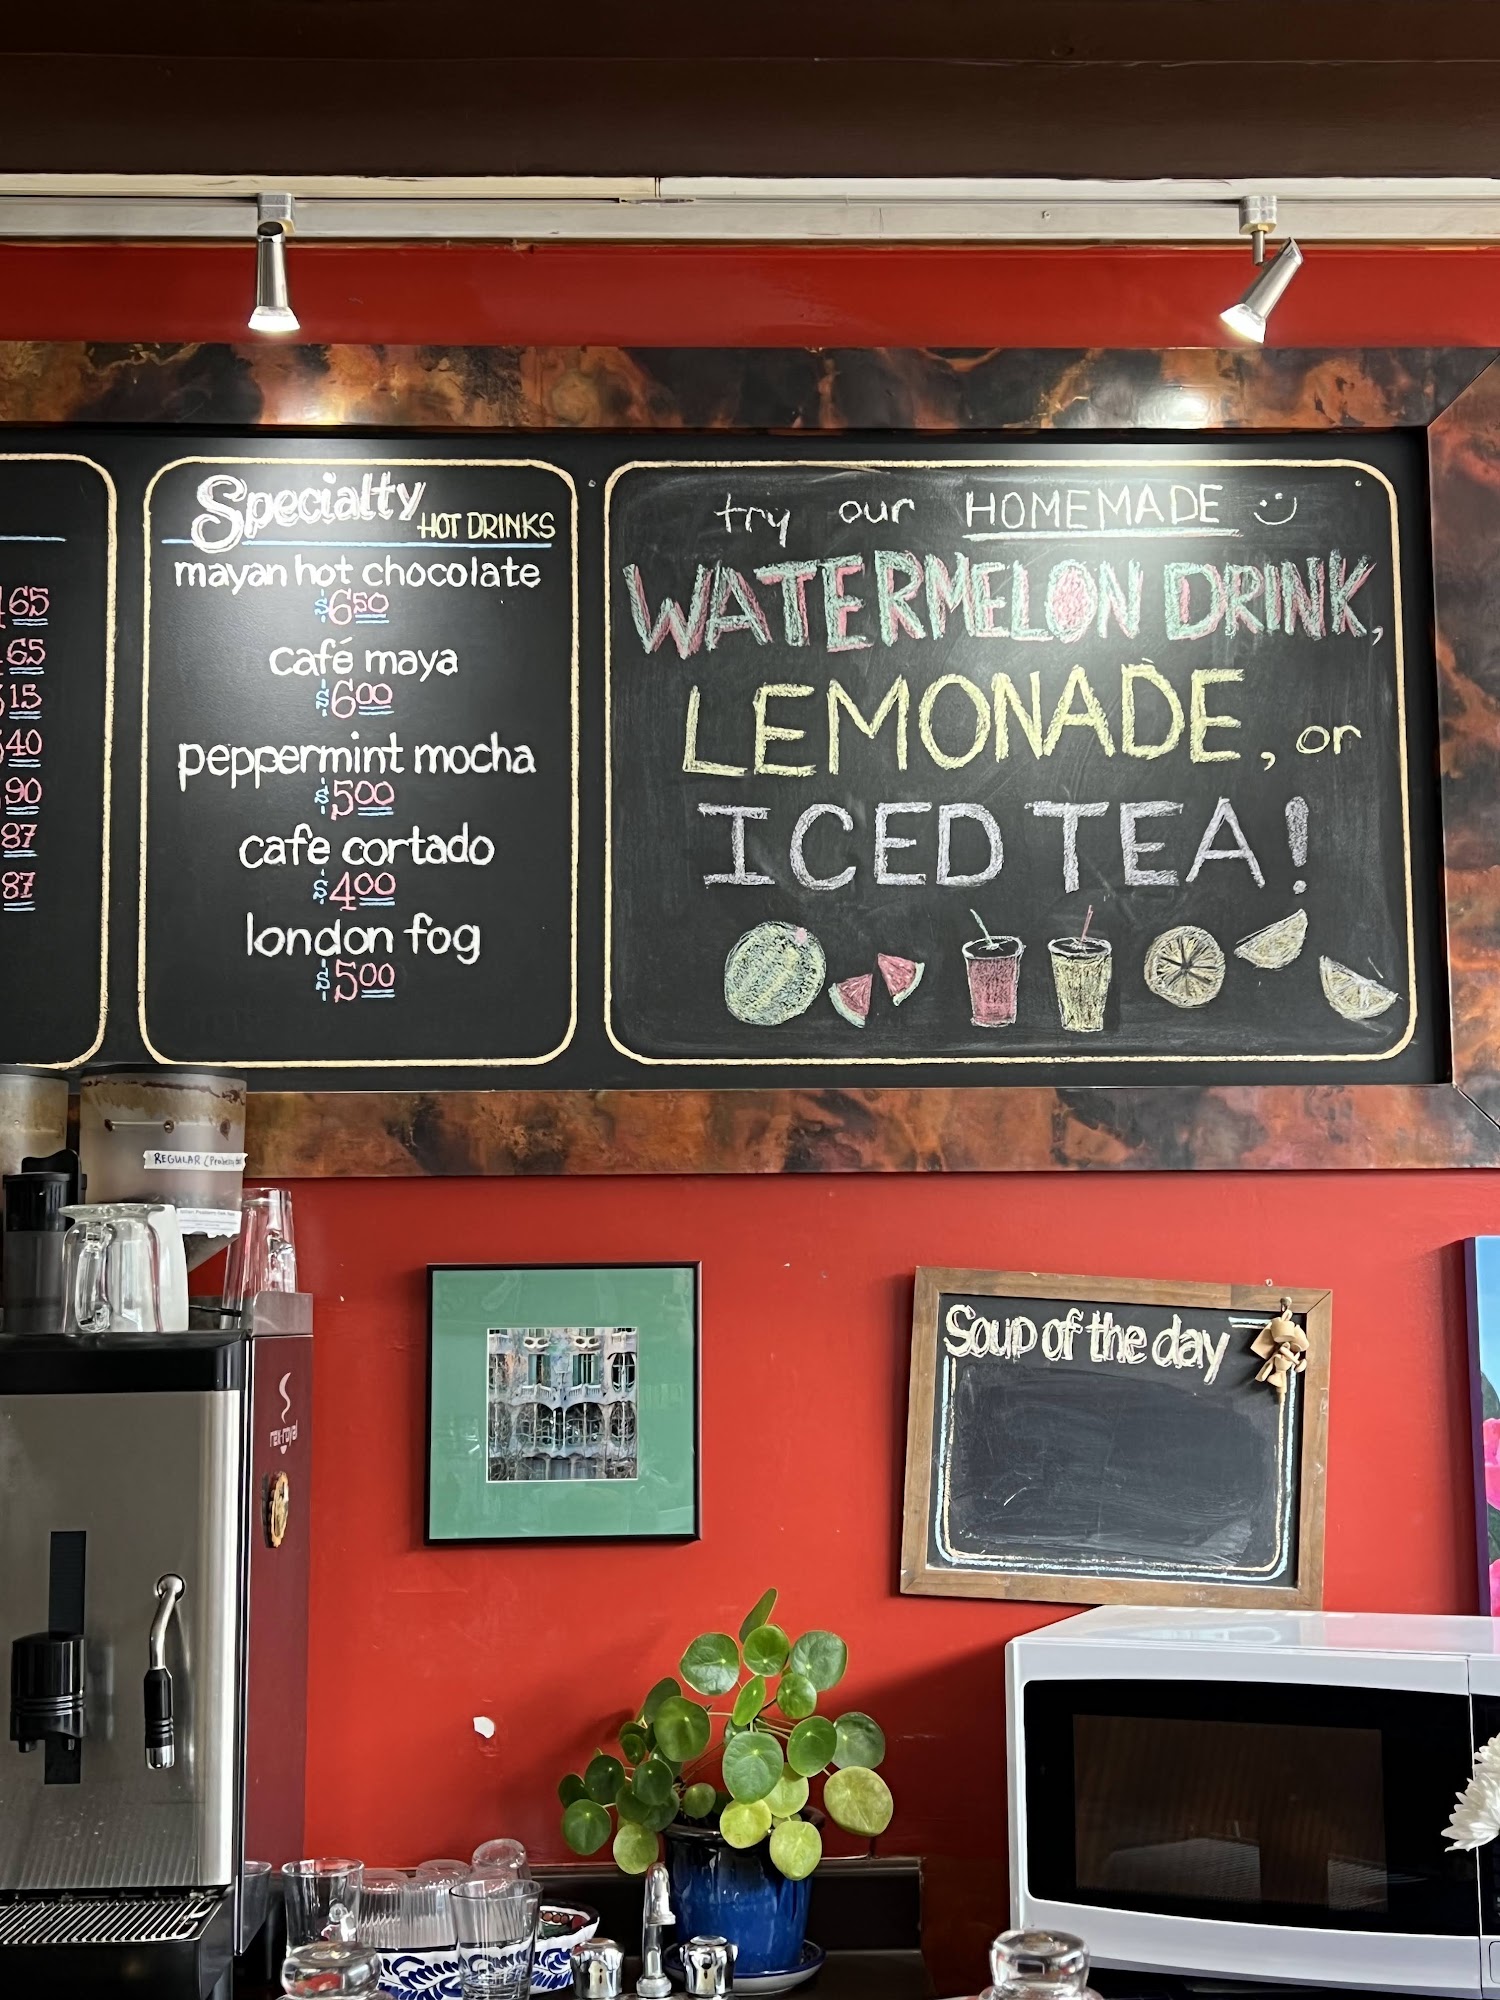 65
65
15
40
90
87
87
Specialty
HOT DRINKS
mayan hot chocolate
$6.50
café maya
$6.00
peppermint mocha
$5.00
cafe cortado
$4.00
london fog
$5.00
try our HOMEMADE
WATERMELON DRINK,
LEMONADE, or
ICED TEA!
REGULAR
rex-royal
Soup of the day